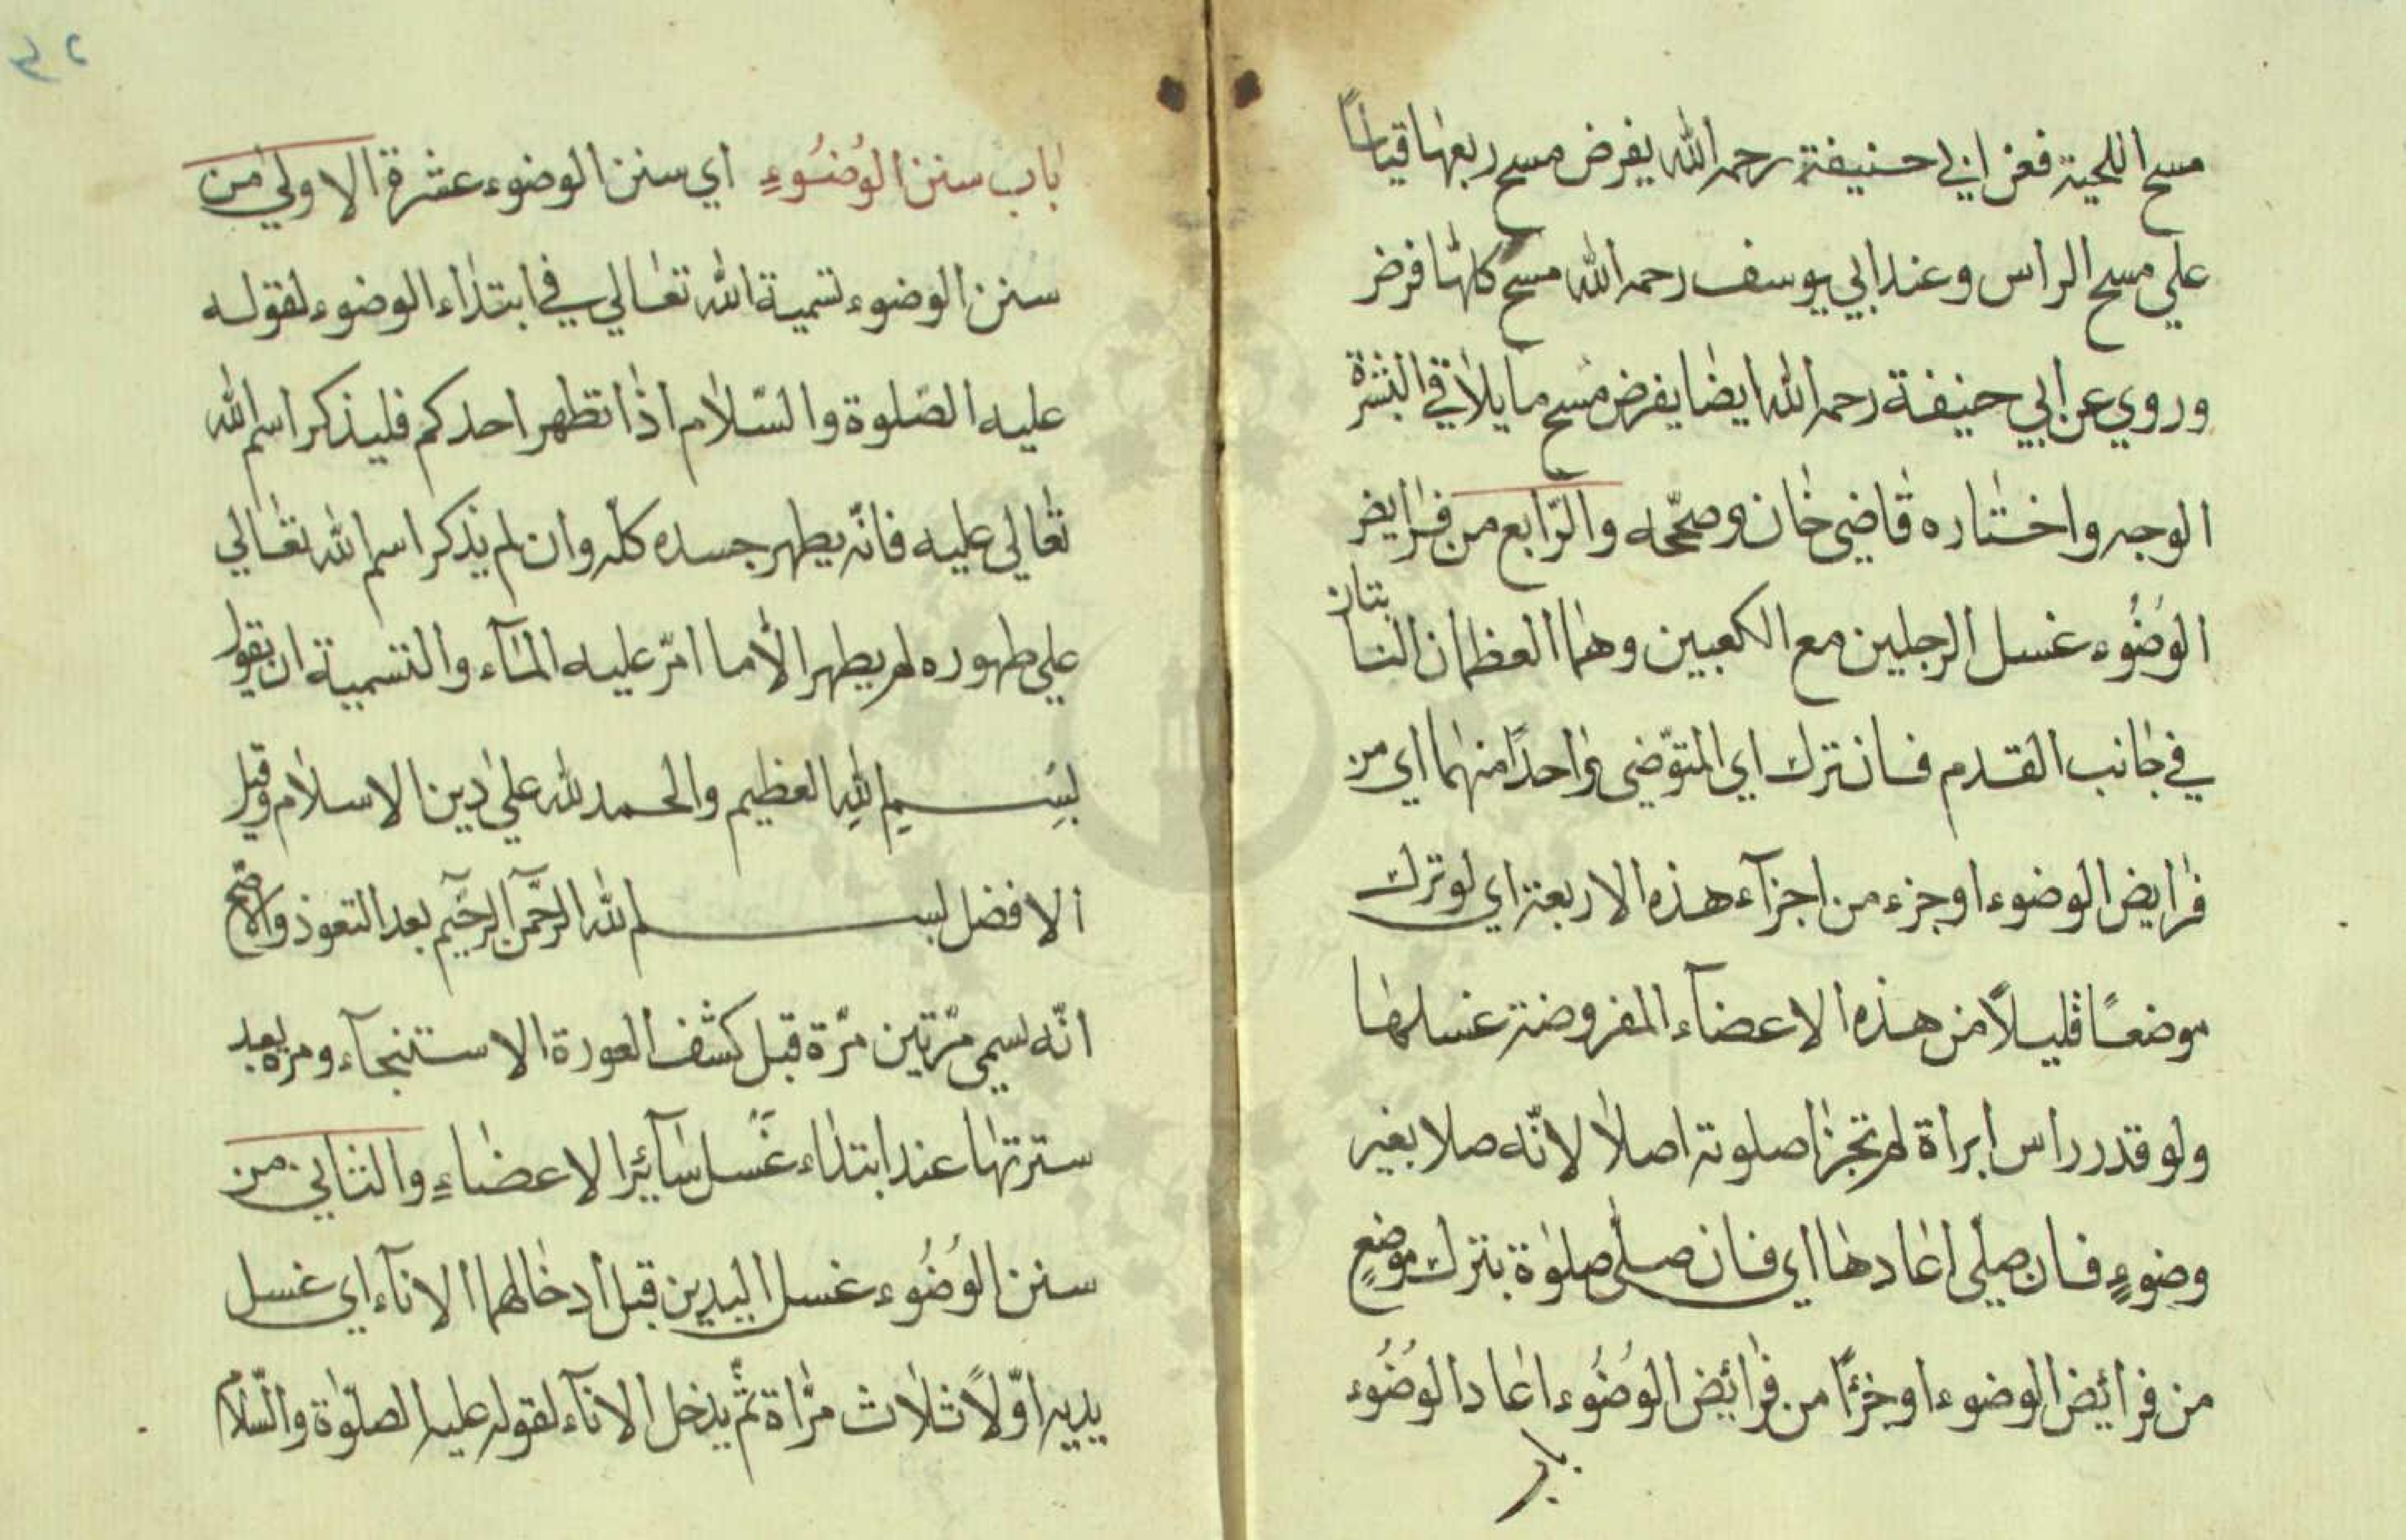 مسح اللحية فعن ابي حنيفة رحمه الله يفرض مسح ربعها قياسا
علي مسح الراس وعند ابي يوسف رحمه الله مسح كلها فرض
وروي عن ابي حنيفة رحمه الله ايضا يفرض مسح ما يلاقي البشرة
الوجه واختاره قاضي خان وصحّحه والرّابع من فرايض
الوُضُوء غسل الرجلين مع الكعبين وهما العظمان الناتبان
في جانب القدم فان ترك اي المتوّضى واحدًا منهما اي من
فرايض الوضوء او جزء من اجزآء هذه الاربعة اي لو ترك
موضعًا قليلاً من هذه الاعضآء المفروضة غسلها
ولو قدر راس ابراة لم تجزا صلوته اصلا لانّه صلا بغير
وضوءٍ فان صلّى اعادها اي فان صلّى صلوة بترك موضعٍ
من فرائض الوضوء او جزءًا من فرائض الوُضُوء اعاد الوُضُوء
باب
٤٢
باب سنن الوُضُوءِ اي سنن الوضوء عشرة الاولي من
سنن الوضوء تسمية الله تعالي في ابتداء الوضوء لقوله
عليه الصّلوة والسّلام اذا تطهر احدكم فليذكر اسم الله
تعالي عليه فانّه يطهر جسده كلّه وان لم يذكر اسم الله تعالي
علي طهوره لم يطهر الا ما امرّ عليه المآء والتسمية ان يقول
بسم الله العظيم والحمد لله علي دين الاسلام وقيل
الافضل بسم الله الرحمن الرحيم بعد التعوذ والاصح
انّه يسمى مرّتين مرّة قبل كشف العورة الاستنجآء ومرة بعد
سترتها عند ابتداء غسل سآئر الاعضاءِ والثاني من
سنن الوُضُوء غسل اليدين قبل ادخالهما الانآء اي غسل
يديه اوّلاً ثلاث مرّاة ثمّ يدخل الانآء لقوله عليه الصلوة والسّلام